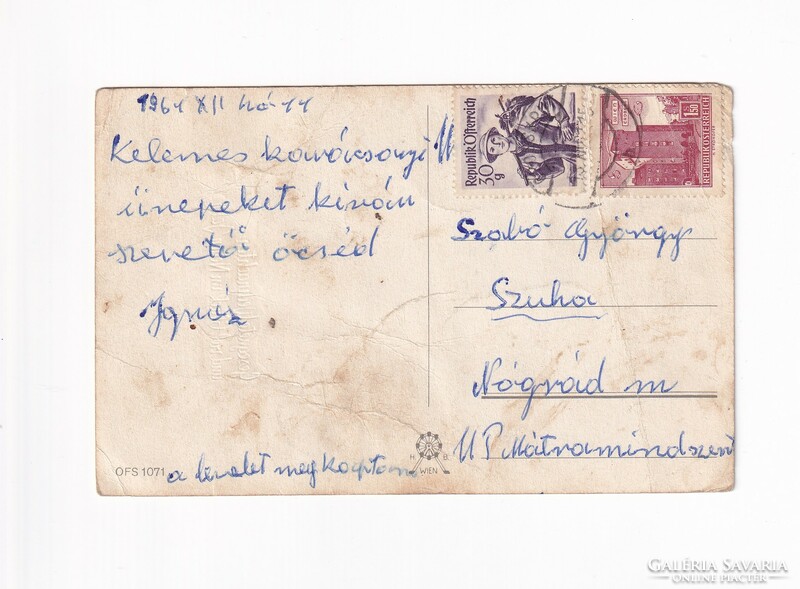 1964 XII hó 11
Kelemes karácsonyi
ünepeket kíván
szerető öcséd
Ignác
a levelet megkaptam
OFS 1071
H B
WIEN
Republik Österreich
30 g
1.50
REPUBLIK ÖSTERREICH
Szabó György
Szuha
Nógrád m
UP Mátramindszent
GALÉRIA SAVARIA
ONLINE PIACTÉR